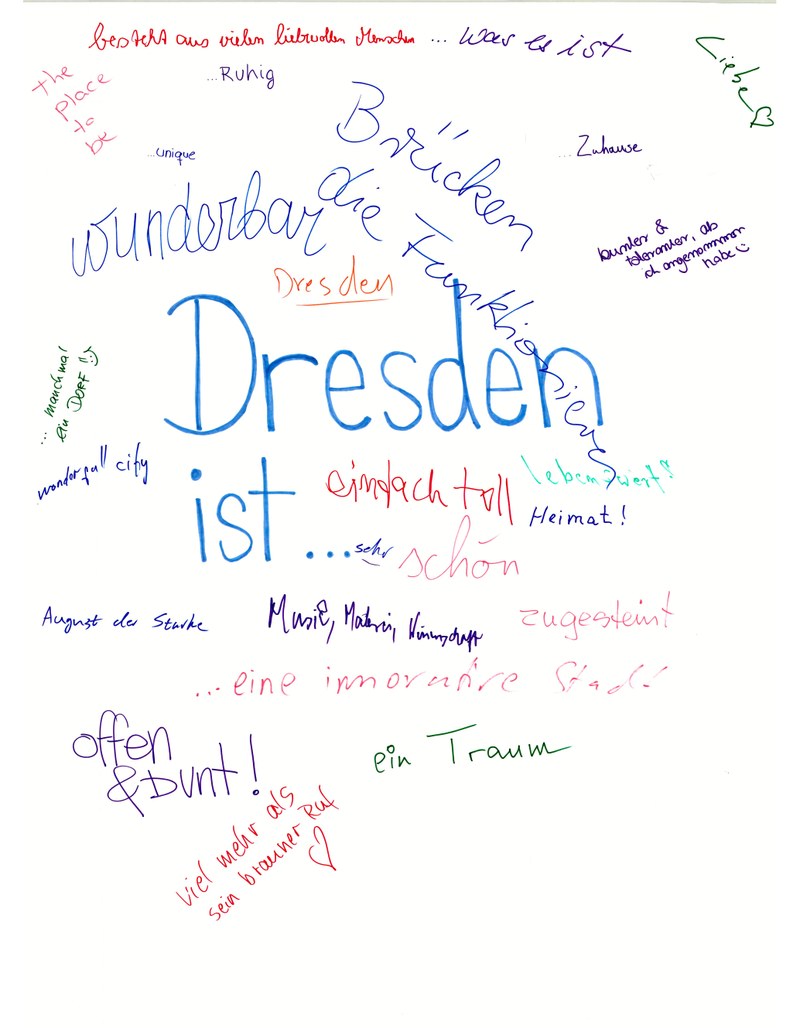 besteht aus vielen liebevollen Menschen
... was es ist
Liebe
the
place
to
be
...Ruhig
...unique
...Zuhause
Brücken
die Funktionieren
wunderbar
bunter &
toleranter, als
ich angenommen
habe
Dresden
Dresden
ist ...
... manchmal
ein DORF !!
wonderfull city
einfach toll
lebenswert!
Heimat!
sehr
schön
August der Starke
Musik, Malerei,
zugesteint
...eine Stadt
offen
& bunt!
ein Traum
viel mehr als
sein brauner Ruf